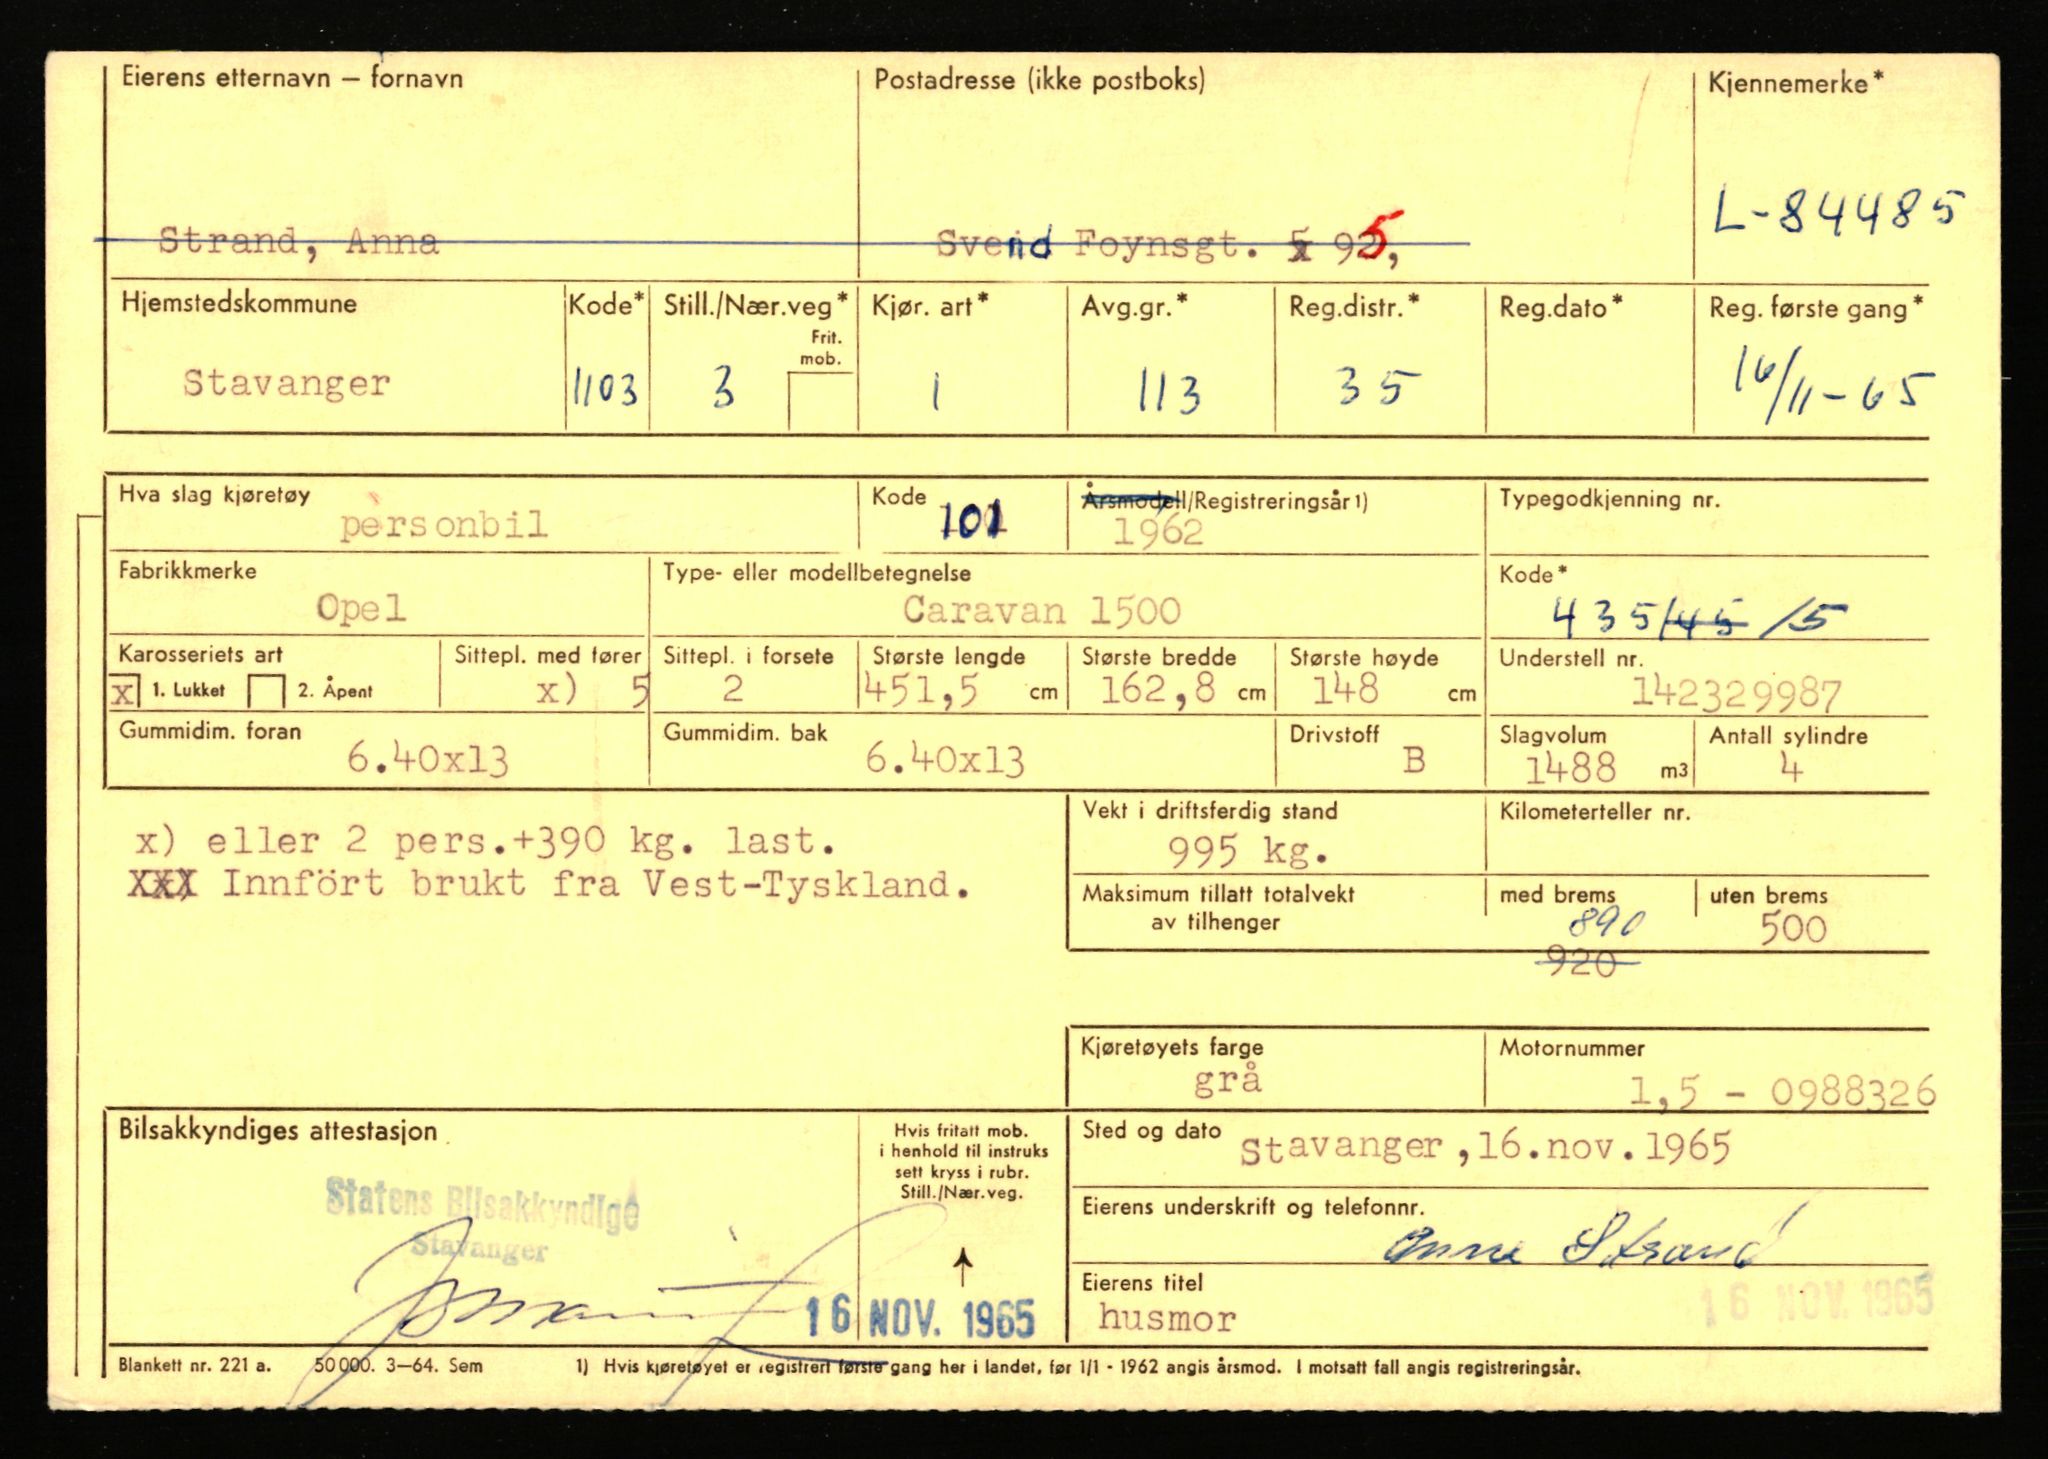 Eierens etternavn – fornavn Postadresse (ikke postboks) Kjennemerke*
L-84485
Strand, Anna Svend Foynsgt. 925,
Hjemstedskommune Kode* Still./Nær.veg* Kjør. art* Avg.gr.* Reg.distr.* Reg.dato* Reg. første gang*
Frit.
mob.
Stavanger 1103 3 1 113 35 16/11-65
Hva slag kjøretøy Kode Årsmodell/Registreringsår 1) Typegodkjenning nr.
personbil 101 1962
Fabrikkmerke Type- eller modellbetegnelse Kode*
Opel Caravan 1500 435/45 /5
Karosseriets art Sittepl. med fører Sittepl. i forsete Største lengde Største bredde Største høyde Understell nr.
x 1. Lukket 2. Åpent x) 5 2 451,5 cm 162,8 cm 148 cm 142329987
Gummidim. foran Gummidim. bak Drivstoff Slagvolum Antall sylindre
6.40x13 6.40x13 B 1488 m3 4
Vekt i driftsferdig stand Kilometerteller nr.
x) eller 2 pers.+390 kg. last. 995 kg.
XXX Innfört brukt fra Vest-Tyskland.
Maksimum tillatt totalvekt med brems uten brems
av tilhenger 890 500
920
Kjøretøyets farge Motornummer
grå 1,5 - 0988326
Bilsakkyndiges attestasjon Hvis fritatt mob.
i henhold til instruks
sett kryss i rubr.
Still./Nær.veg.
Sted og dato Stavanger,16.nov.1965
Statens Bilsakkyndige
Stavanger
Eierens underskrift og telefonnr.
Anna Strand
Eierens titel
husmor
16 NOV. 1965 16 NOV. 1965
Blankett nr. 221 a. 50000. 3–64. Sem 1) Hvis kjøretøyet er registrert første gang her i landet, før 1/1 - 1962 angis årsmod. I motsatt fall angis registreringsår.